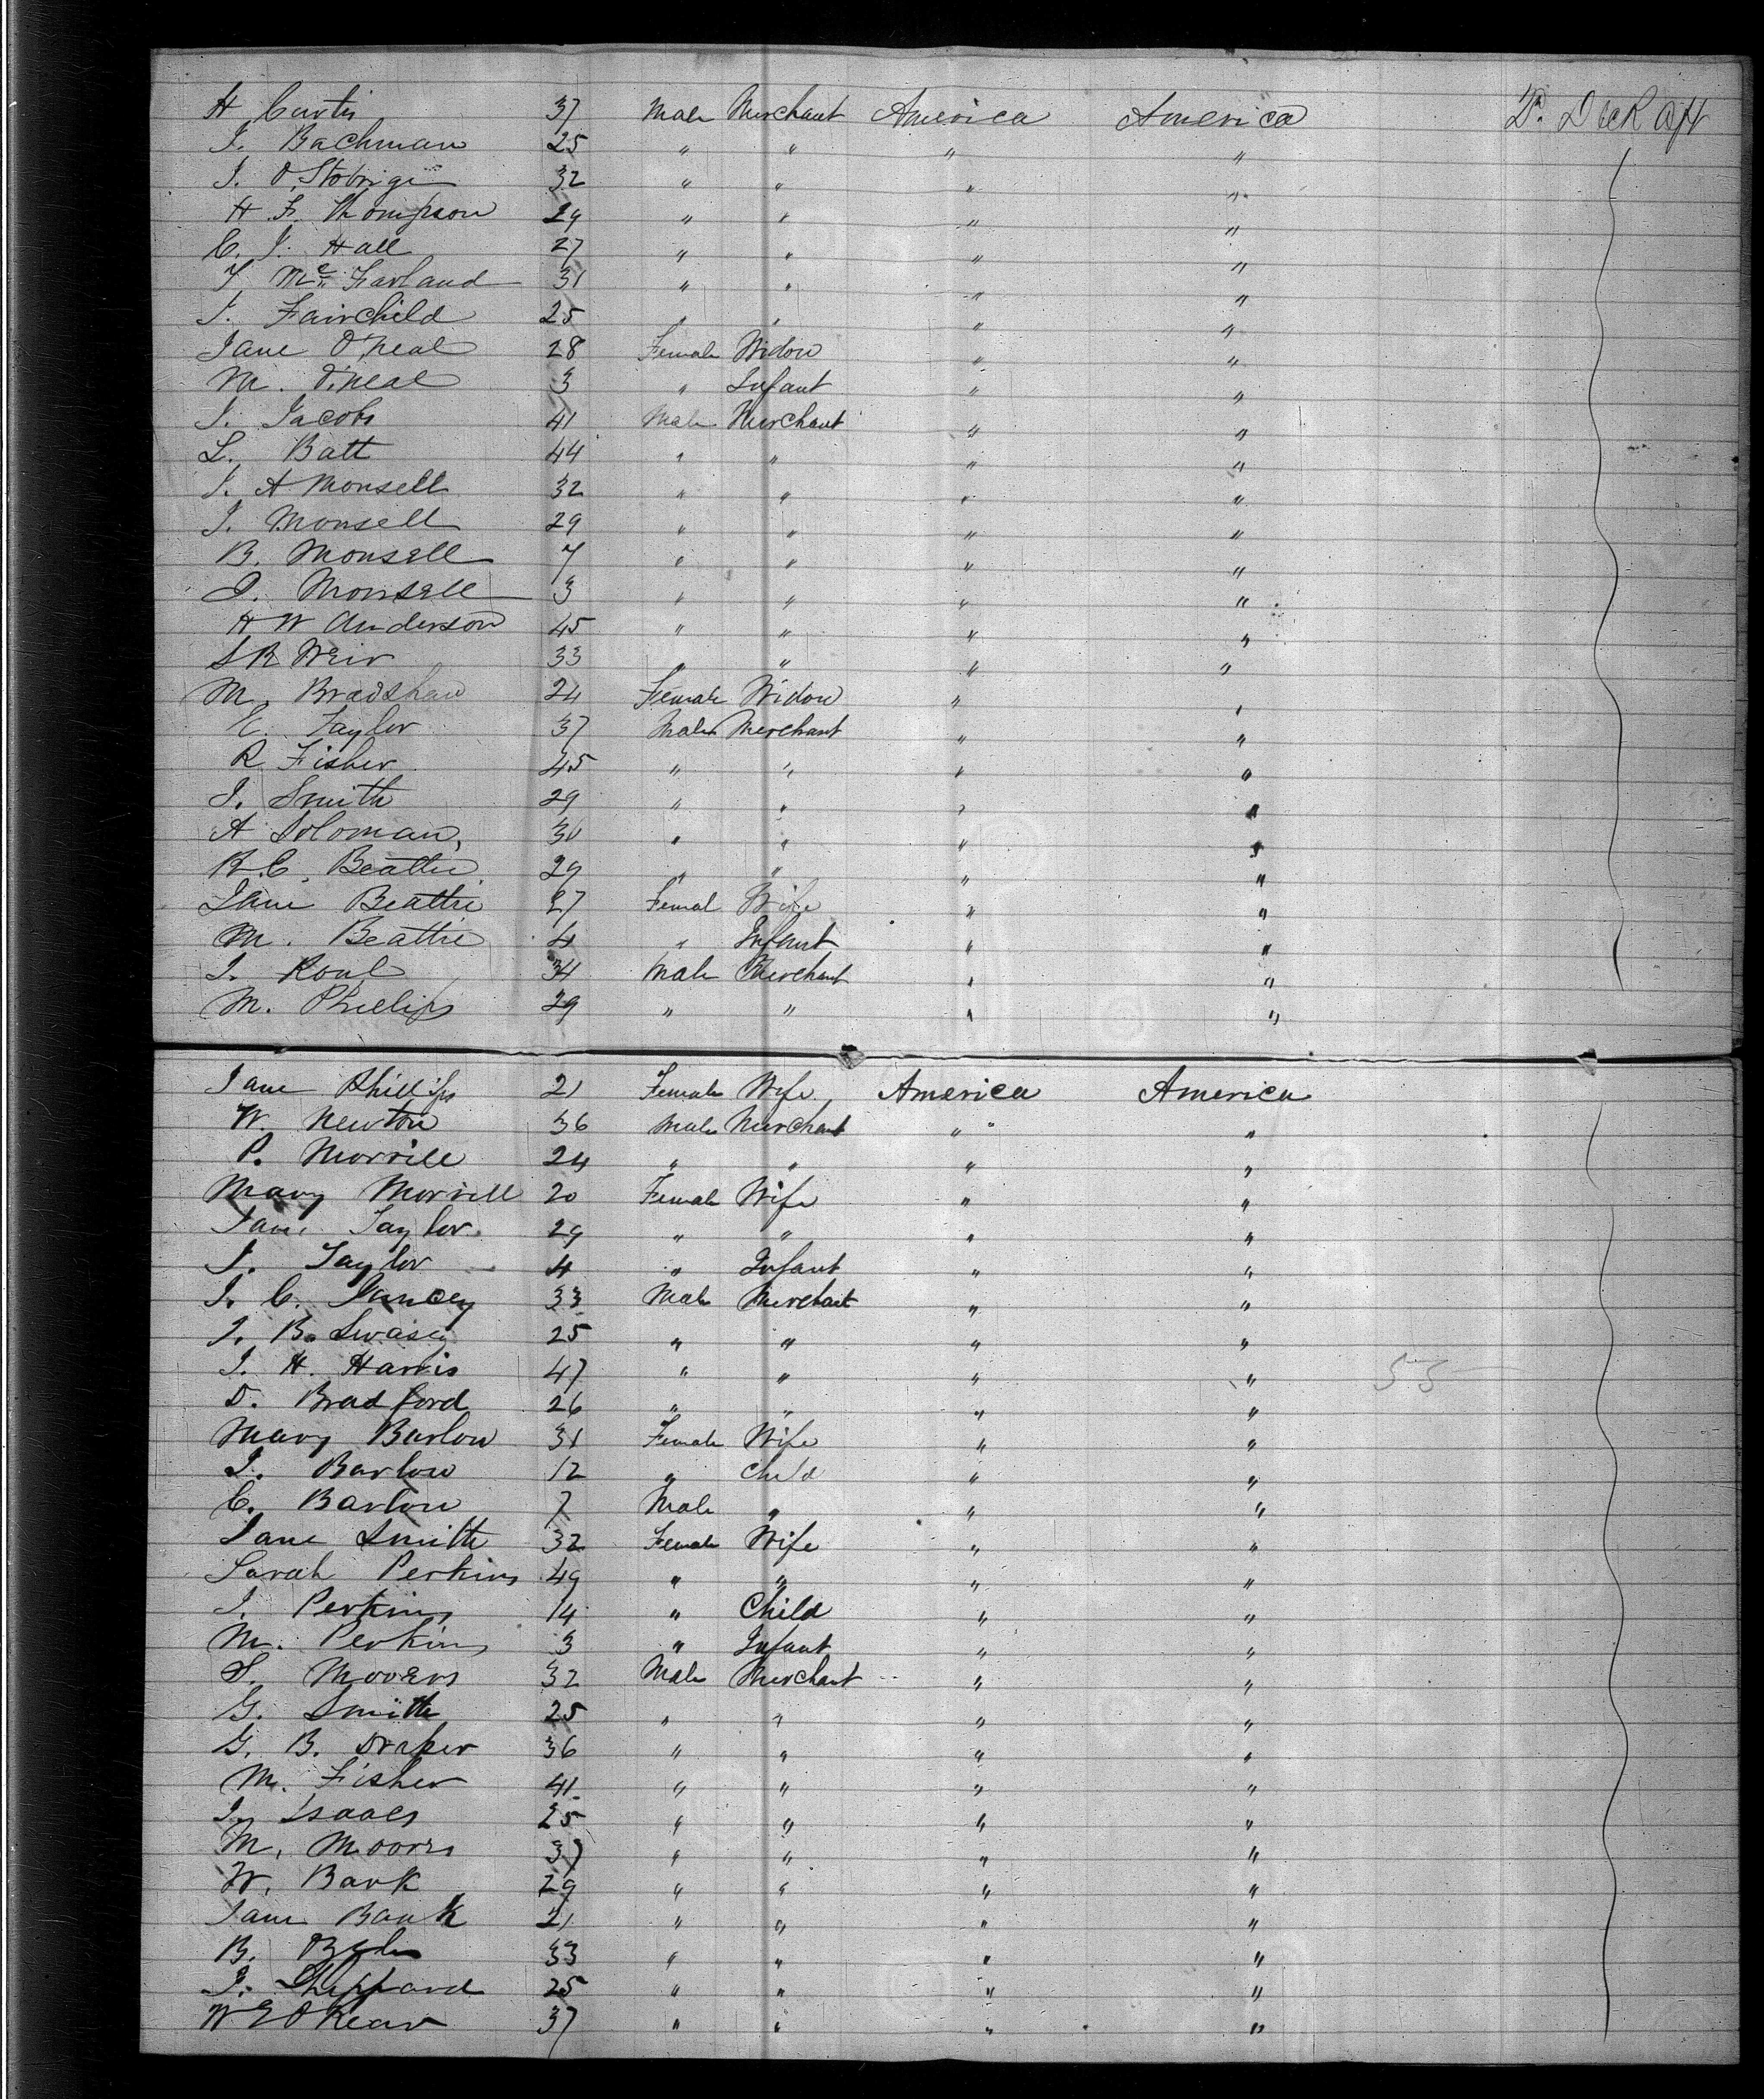 H Curtis 37 Male Merchant America America D. Deck Aft
J. Bachman 25 " " " "
J. 32 " " " "
H. F. Thompson 29 " " " "
C. J. Hall 27 " " " "
T. McFarland 31 " " " "
J. Fairchild 25 " " " "
Jane O'Neal 28 Female Widow " "
M. O'Neal 3 " Infant " "
J. Jacobs 41 Male Merchant " "
L. Batt 44 " " " "
J. A Monsell 32 " " " "
J. Monsell 29 " " " "
B. Monsell 7 " " " "
J. Monsell 3 " " " "
H W Anderson 45 " " " "
S R Weir 33 " " " "
M. Bradshaw 24 Female Widow " "
E. Taylor 37 Male Merchant " "
R Fisher 45 " " " "
J. Smith 29 " " " "
A Soloman, 30 " " " "
R. C. Beattie 29 " " " "
Jane Beattie 27 Femal Wife " "
M. Beattie 4 " Infant " "
J. Roul 34 Male Merchant " "
M. Phillips 29 " " " "
Jane Phillips 21 Female Wife America America
W. Newton 36 Male Merchant " "
P. Morrill 24 " " " "
Mary Morrill 20 Female Wife " "
Jane Taylor 29 " " " "
J. Taylor 4 " Infant " "
J. C. Yancey 33 Male Merchant " "
J. B. Swasey 25 " " " "
J. H. Harris 47 " " " " 55
D. Bradford 26 " " " "
Mary Barlow 31 Female Wife " "
J. Barlow 12 " Child " "
C. Barlow 7 Male " " "
Jane Smith 32 Female Wife " "
Sarah Perkins 49 " " " "
J. Perkins 14 " Child " "
M. Perkins 3 " Infant " "
S. Moores 32 Male Merchant " "
G. Smith 25 " " " "
G. B. Draper 36 " " " "
M. Fisher 41 " " " "
J. Isaacs 25 " " " "
M. Moores 37 " " " "
W. Bank 29 " " " "
Jane Bank 21 " " " "
B. 33 " " " "
J. Sheppard 25 " " " "
W E O Kear 37 " " " "